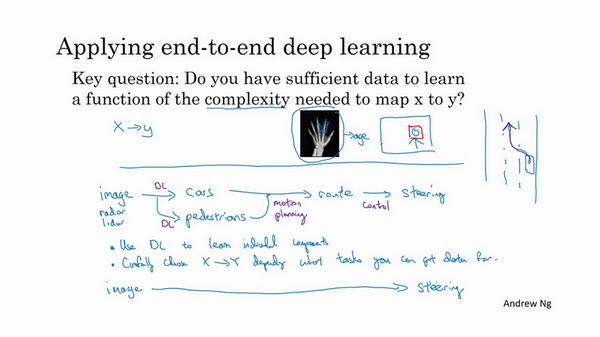 Applying end-to-end deep learning
Key question: Do you have sufficient data to learn
a function of the complexity needed to map x to y?
X → y
→ age
image DL → cars → route → steering
radar
lidar
DL pedestrians
motion
planning
control
• Use DL to learn individual components
• Carefully choose X → Y depending what tasks you can get data for.
image → steering
Andrew Ng